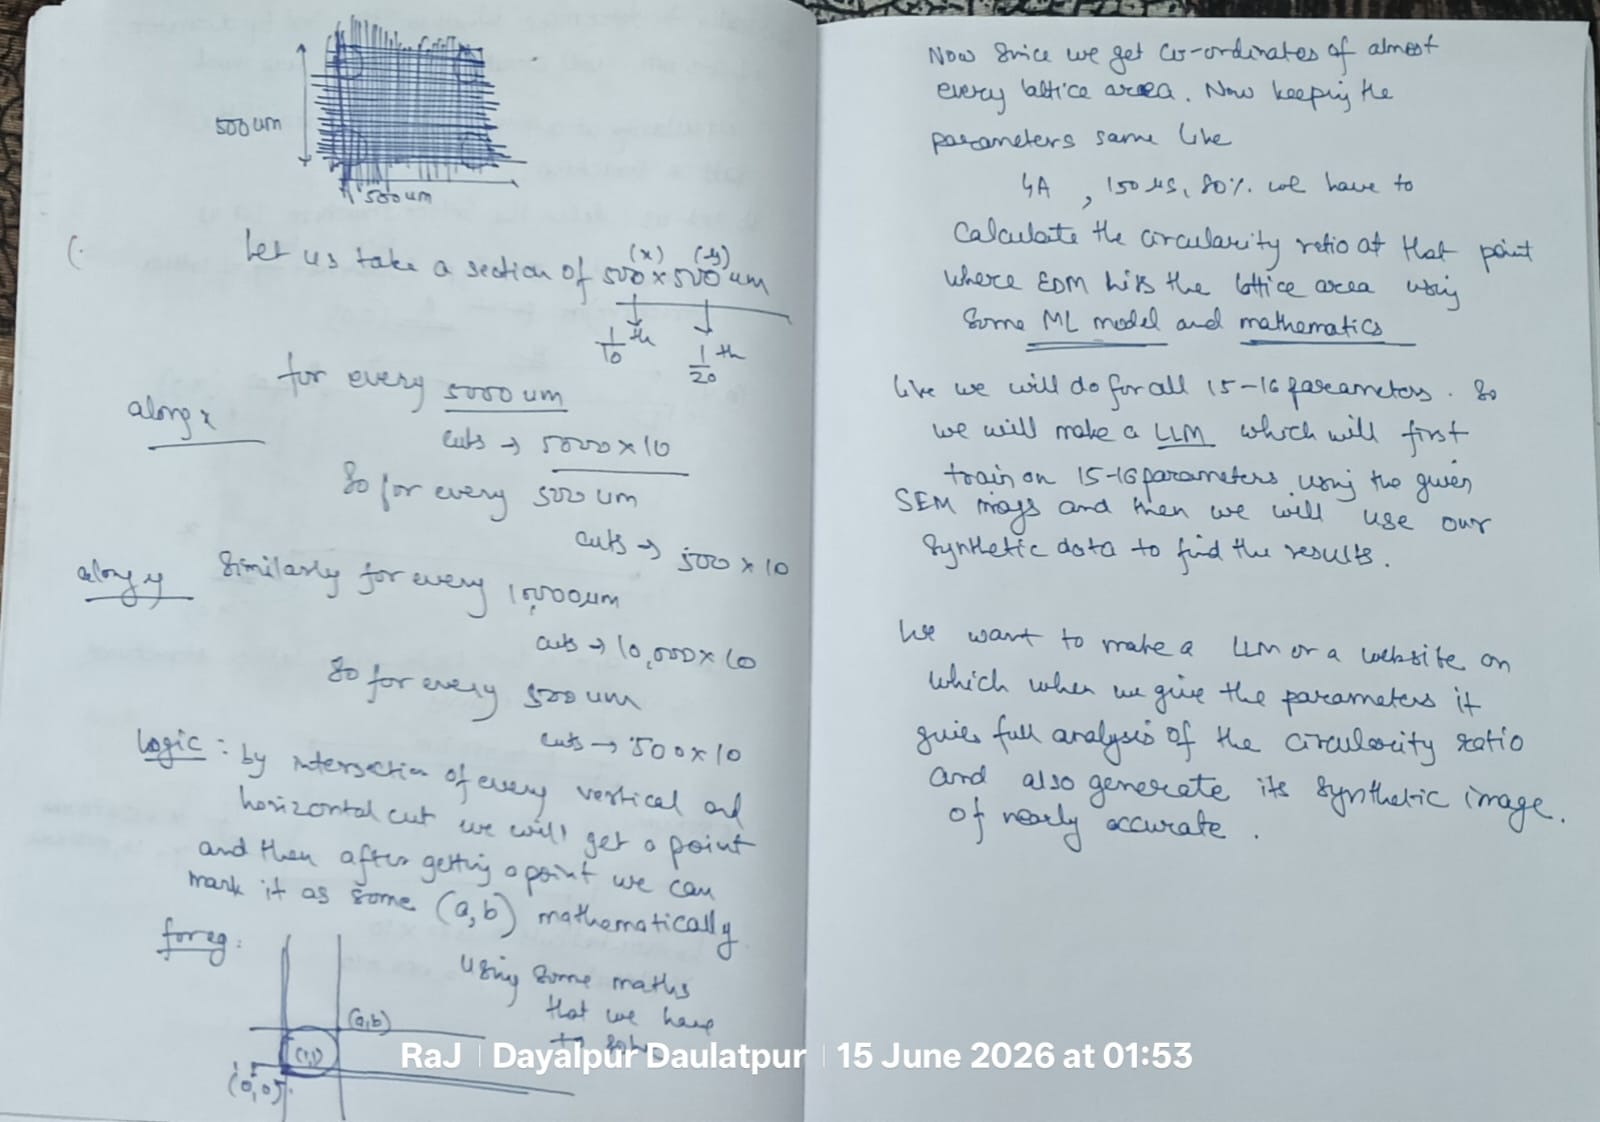 500 um
500 um
Let us take a section of 500 × 500 um
(x) (y)
1/10 th
1/20 th
for every 5000 um
along x
cuts → 5000 × 10
So for every 500 um
cuts → 500 × 10
along y
Similarly for every 10,000 um
cuts → 10,000 × 10
So for every 500 um
cuts → 500 × 10
Logic : by intersection of every vertical and
horizontal cut we will get a point
and then after getting a point we can
mark it as some (a,b) mathematically.
for eg:
using some maths
that we have
to
(a,b)
(1,1)
(0,0)
Now since we get co-ordinates of almost
every lattice area. Now keeping the
parameters same like
4A , 150 us, 80% we have to
calculate the circularity ratio at that point
where EDM hits the lattice area using
some ML model and mathematics
like we will do for all 15-16 parameters. So
we will make a LLM which will first
train on 15-16 parameters using the given
SEM imags and then we will use our
synthetic data to find the results.
We want to make a LLM or a website on
which when we give the parameters it
gives full analysis of the circularity ratio
and also generate its synthetic image.
of nearly accurate .
RaJ | Dayalpur Daulatpur | 15 June 2026 at 01:53